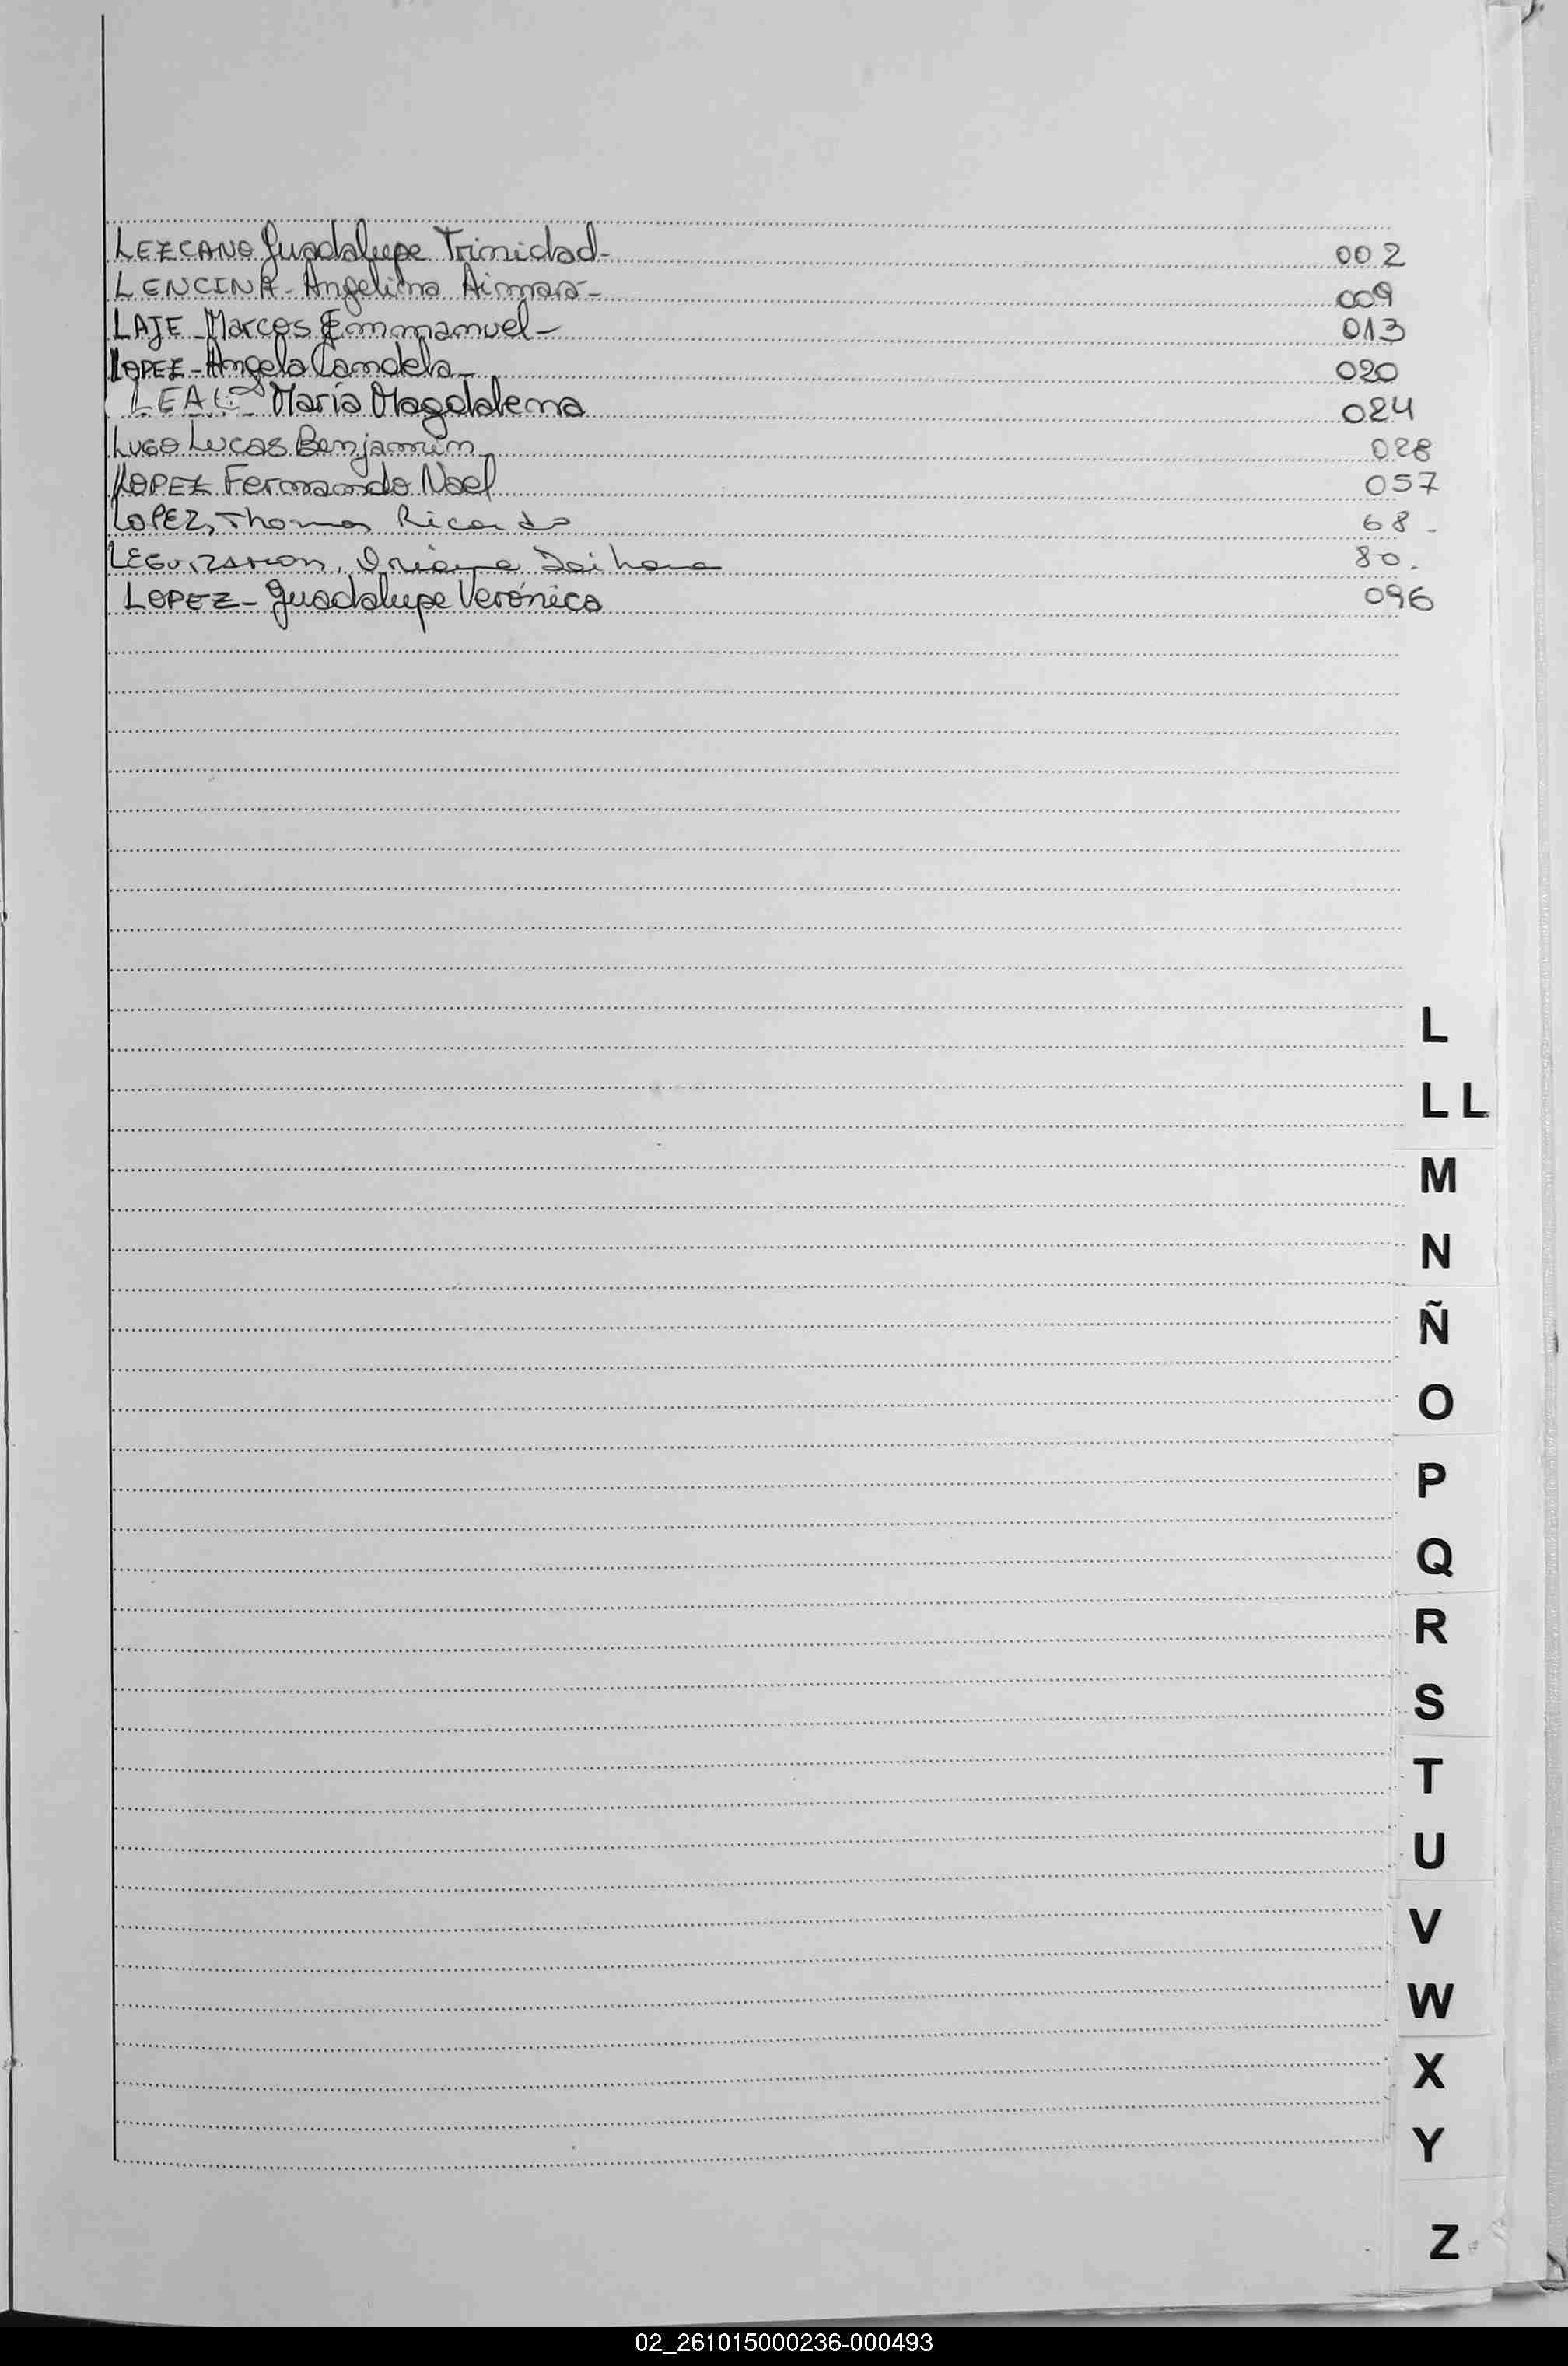 LEZCANO Guadalupe Trinidad- 002
LENCINA- Angelina Aimara- 009
LAJE-Marcos Emmanuel- 013
LOPEZ-Angela Candela- 020
LEAL- María Magdalena 024
LUGO Lucas Benjamín 028
LOPEZ Fernando Noel 057
LOPEZ, Thomas Ricardo 68-
LEGUIZAMON, Oriana Daihana 80.
LOPEZ- Guadalupe Verónica 096
L
LL
M
N
Ñ
O
P
Q
R
S
T
U
V
W
X
Y
Z
02_261015000236-000493